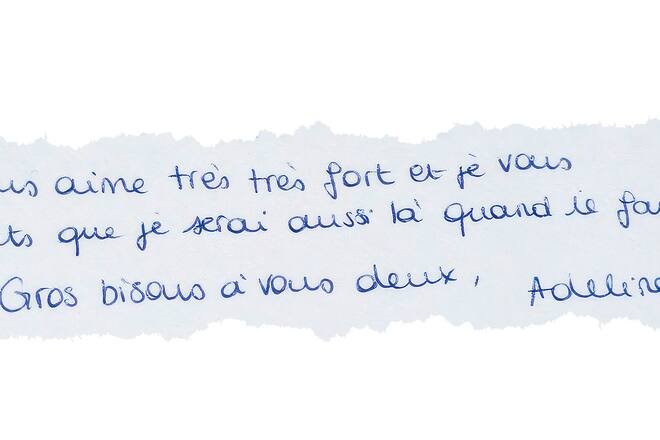 us aime très très fort et je vous
ts que je serai aussi là quand ie fa
Gros bisous à vous deux, Adeline